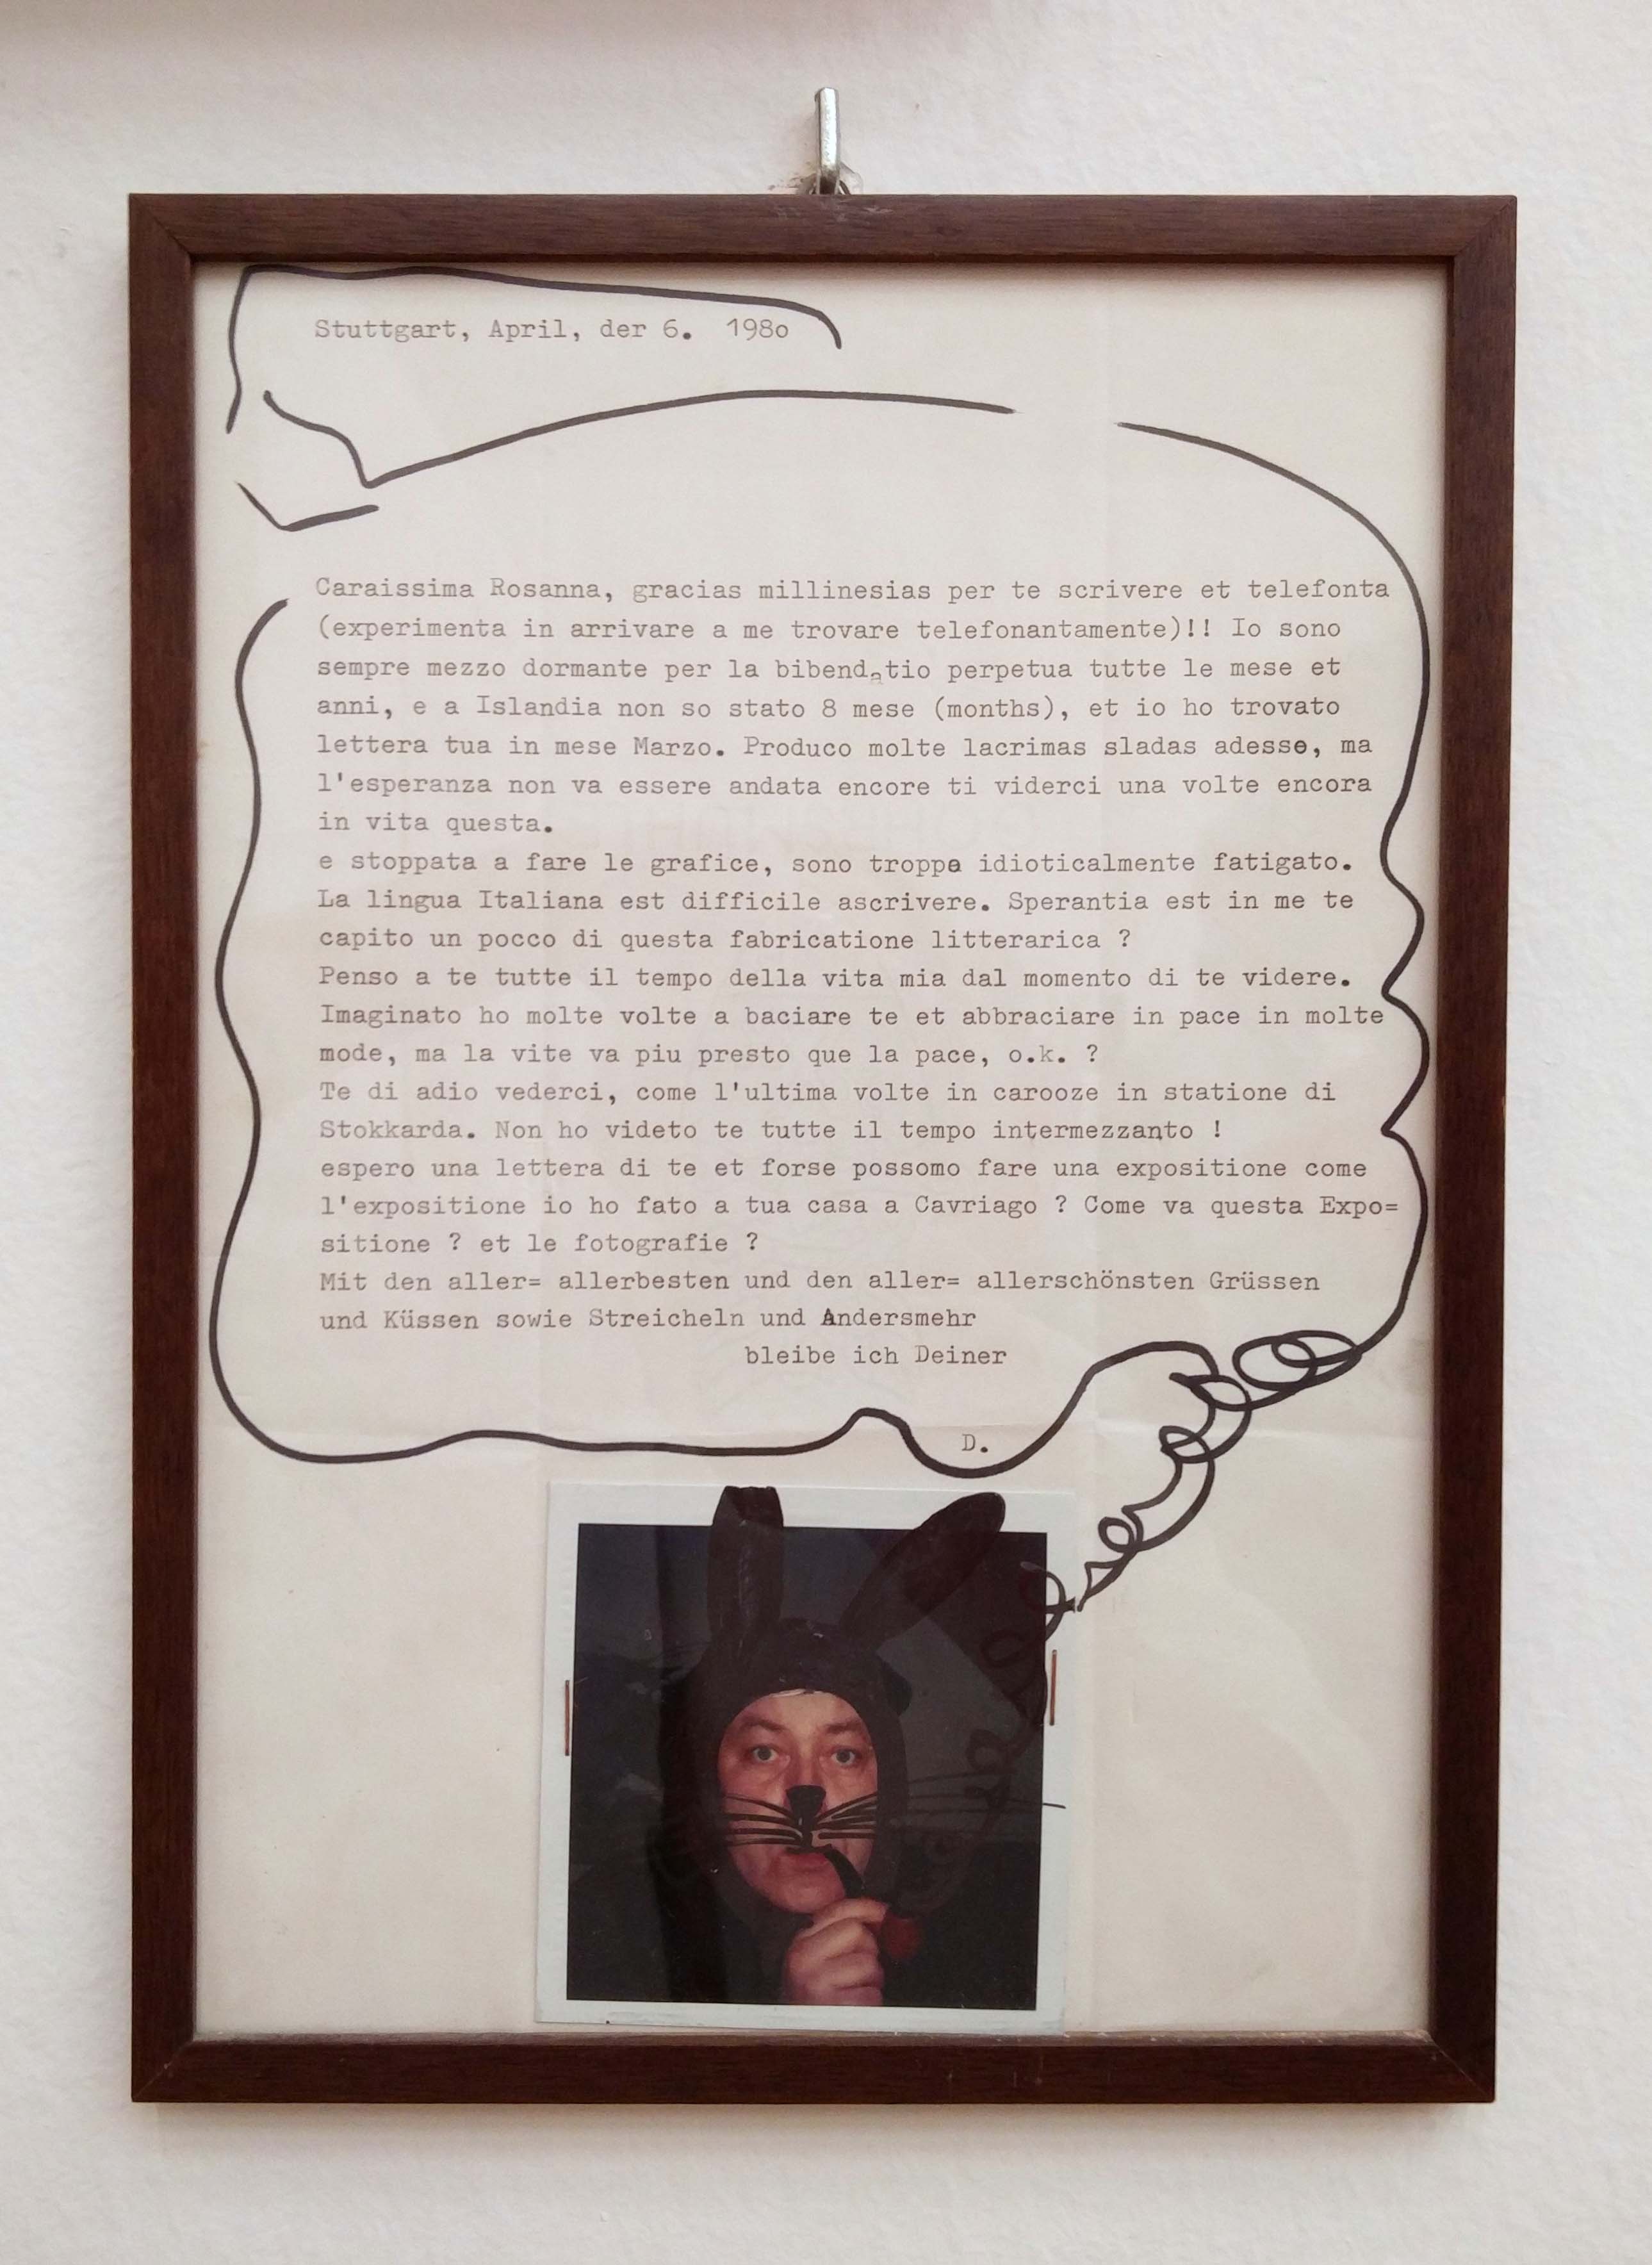 Stuttgart, April, der 6.  198o
Caraissima Rosanna, gracias millinesias per te scrivere et telefonta
(experimenta in arrivare a me trovare telefonantamente)!! Io sono
sempre mezzo dormante per la bibendatio perpetua tutte le mese et
anni, e a Islandia non so stato 8 mese (months), et io ho trovato
lettera tua in mese Marzo. Produco molte lacrimas sladas adesse, ma
l'esperanza non va essere andata encore ti viderci una volte encora
in vita questa.
e stoppata a fare le grafice, sono troppe idioticalmente fatigato.
La lingua Italiana est difficile ascrivere. Sperantia est in me te
capito un pocco di questa fabricatione litterarica ?
Penso a te tutte il tempo della vita mia dal momento di te videre.
Imaginato ho molte volte a baciare te et abbraciare in pace in molte
mode, ma la vite va piu presto que la pace, o.k. ?
Te di adio vederci, come l'ultima volte in carooze in statione di
Stokkarda. Non ho videto te tutte il tempo intermezzanto !
espero una lettera di te et forse possomo fare una expositione come
l'expositione io ho fato a tua casa a Cavriago ? Come va questa Expo=
sitione ? et le fotografie ?
Mit den aller= allerbesten und den aller= allerschönsten Grüssen
und Küssen sowie Streicheln und Andersmehr
bleibe ich Deiner
D.